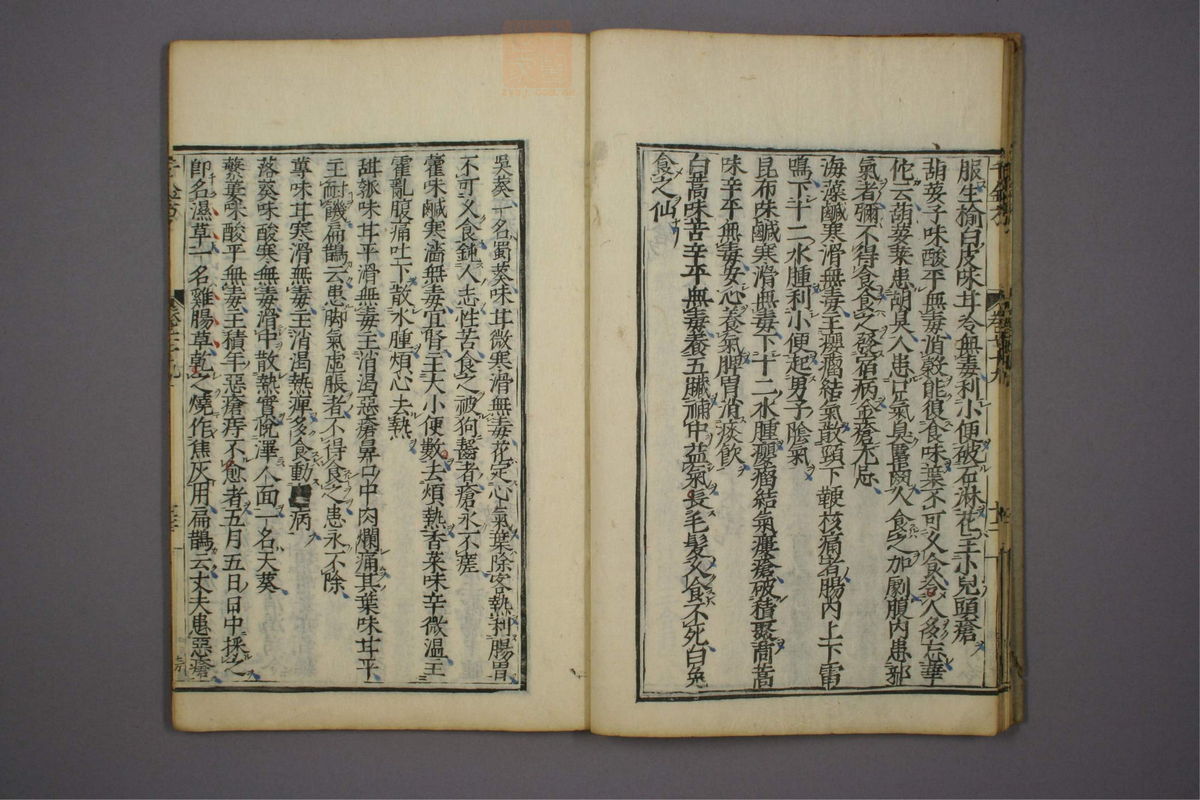 服生榆白皮味甘冷無毒利小便破石淋花主小兒頭瘡
胡荽子味酸平無毒消穀能復食味葉不可久食令人多忘華
佗云胡荽菜患胡臭人患口氣臭䘌齒人食之加劇腹內患邪
氣者彌不得食食之發宿病金瘡尤忌
海藻鹹寒滑無毒主癭瘤結氣散頸下鞕核痛者腸內上下雷
鳴下十二水腫利小便起男子陰氣
昆布味鹹寒滑無毒下十二水腫癭瘤結氣瘻瘡破積聚茼蒿
味辛平無毒安心養氣脾胃消痰飲
白蒿味苦辛平無毒養五臟補中益氣長毛髮久食不死白兔
食之仙
吳葵一名蜀葵味甘微寒滑無毒花定心氣葉除客熱利腸胃
不可久食鈍人志性若食之被狗齧者瘡永不瘥
藿味鹹寒濇無毒宜腎主大小便數去煩熱香菜味辛微溫主
霍亂腹痛吐下散水腫煩心去熱
甜瓠味甘平滑無毒主消渴惡瘡鼻口中肉爛痛其葉味甘平
主耐饑扁鵲云患脚氣虛脹者不得食之患永不除
蓴味甘寒滑無毒主消渴熱痺多食動病
落葵味酸寒無毒滑中散熱實悅澤人面一名天葵
蘩蔞味酸平無毒主積年惡瘡痔不愈者五月五日日中採之
卽名滋草一名雞腸草乾之燒作焦灰用扁鵲云丈夫患惡瘡